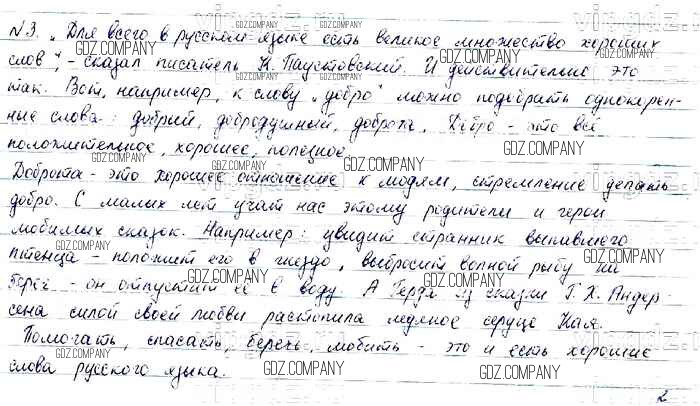 №3. „Для всего в русском языке есть великое множество хороших
слов", - сказал писатель К. Паустовский. И действительно это
так. Вот, например, к слову „добро" можно подобрать однокорен-
ные слова: добрый, добродушный, доброта. Добро - это всё
положительное, хорошее, полезное.
Доброта - это хорошее отношение к людям, стремление делать
добро. С малых лет учат нас этому родители и герои
любимых сказок. Например: увидит странник выпавшего
птенца - положит его в гнездо, выбросит волной рыбу на
берег - он отпустит её в воду. А Герда из сказки Г. Х. Андер-
сена силой своей любви растопила ледяное сердце Кая.
Помогать, спасать, беречь, любить - это и есть хорошие
слова русского языка.
2